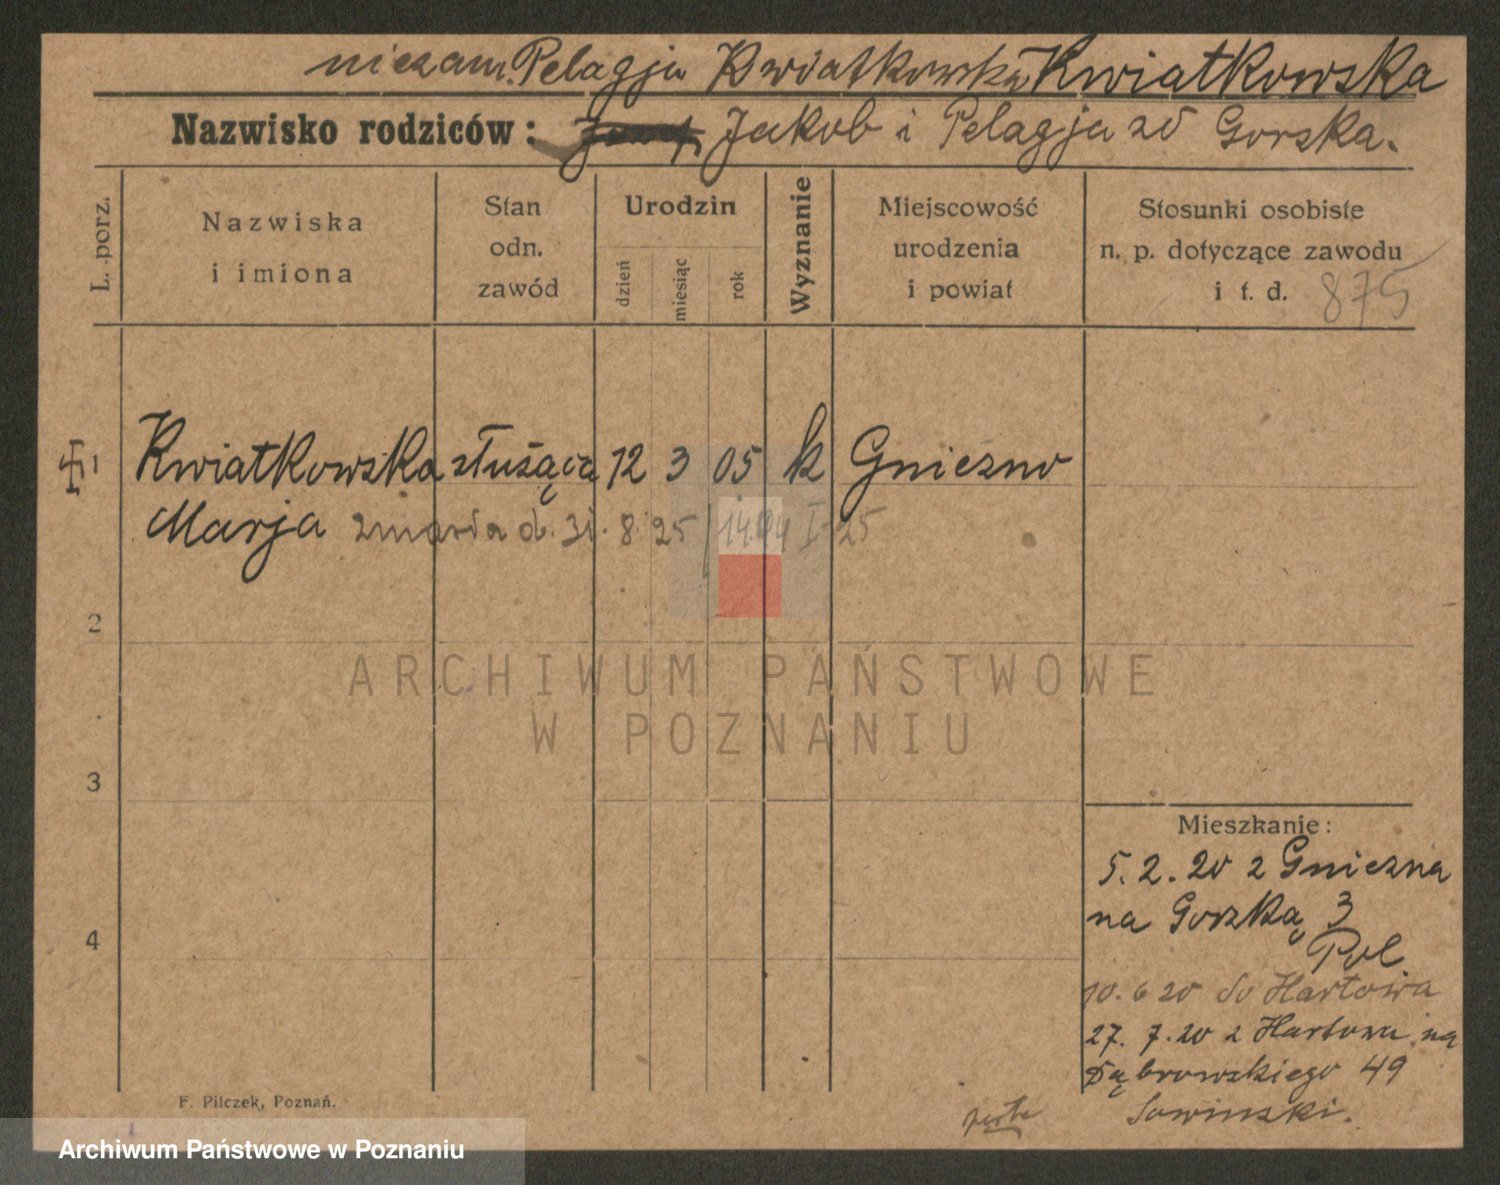 niezam. Pelagja Kwiatkowska Kwiatkowska
Nazwisko rodziców: Jakob i Pelagja zd Gorska.
L. porz.
Nazwiska
i imiona
Stan
odn.
zawód
Urodzin
dzień
miesiąc
rok
Wyznanie
Miejscowość
urodzenia
i powiat
Stosunki osobiste
n. p. dotyczące zawodu
i t. d. 875
1 Kwiatkowska służąca 12 3 05 k Gniezno
Marja zmarła d. 31. 8. 25
2
3
4
ARCHIWUM PAŃSTWOWE
W POZNANIU
Mieszkanie:
5. 2. 20 z Gniezna
na Gorzką 3
Pol
10. 6 20 do Hartowa
27. 7. 20 z Hartowa na
Dąbrowskiego 49
Sowinski.
F. Pilczek, Poznań.
Archiwum Państwowe w Poznaniu